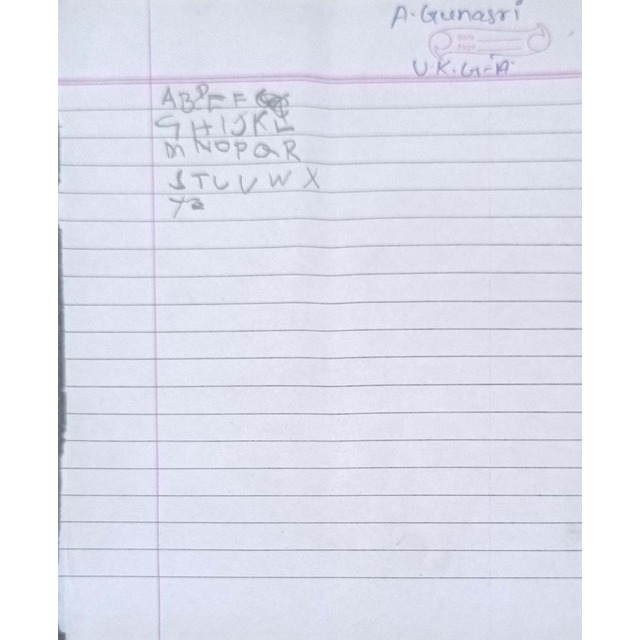 A. Gunasri
U.K.G-A
A B C D E F
G H I J K L
M N O P Q R
S T U V W X
Y Z